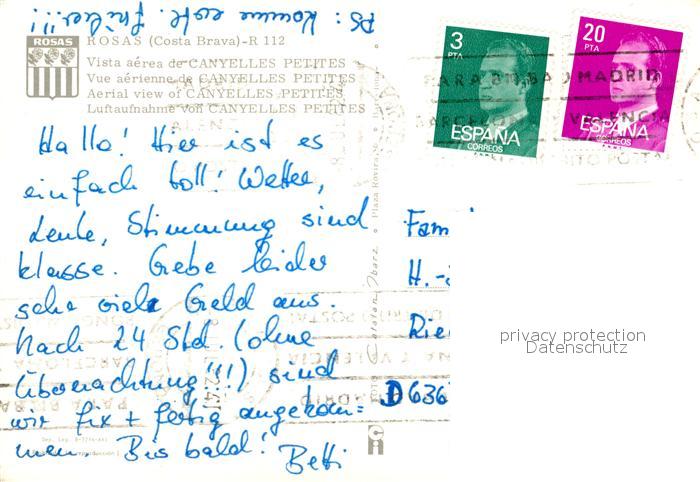 PS: Komme erst früher!!!
ROSAS
ROSAS (Costa Brava)-R 112
Vista aérea de CANYELLES PETITES
Vue aérienne de CANYELLES PETITES
Aerial view of CANYELLES PETITES
Luftaufnahme von CANYELLES PETITES
3
PTA
ESPAÑA
CORREOS
20
PTA
ESPAÑA
CORREOS
PARA BILBAO MADRID
BARCELONA VALENCIA
Hallo! Hier ist es
einfach toll! Wetter,
Leute, Stimmung sind
klasse. Gebe leider
sehr viel Geld aus.
Nach 24 Std. (ohne
Übernachtung!!!) sind
wir fix + fertig angekom=
men. Bis bald!
Betti
Fam
H.-
Rie
D 636
privacy protection
Datenschutz